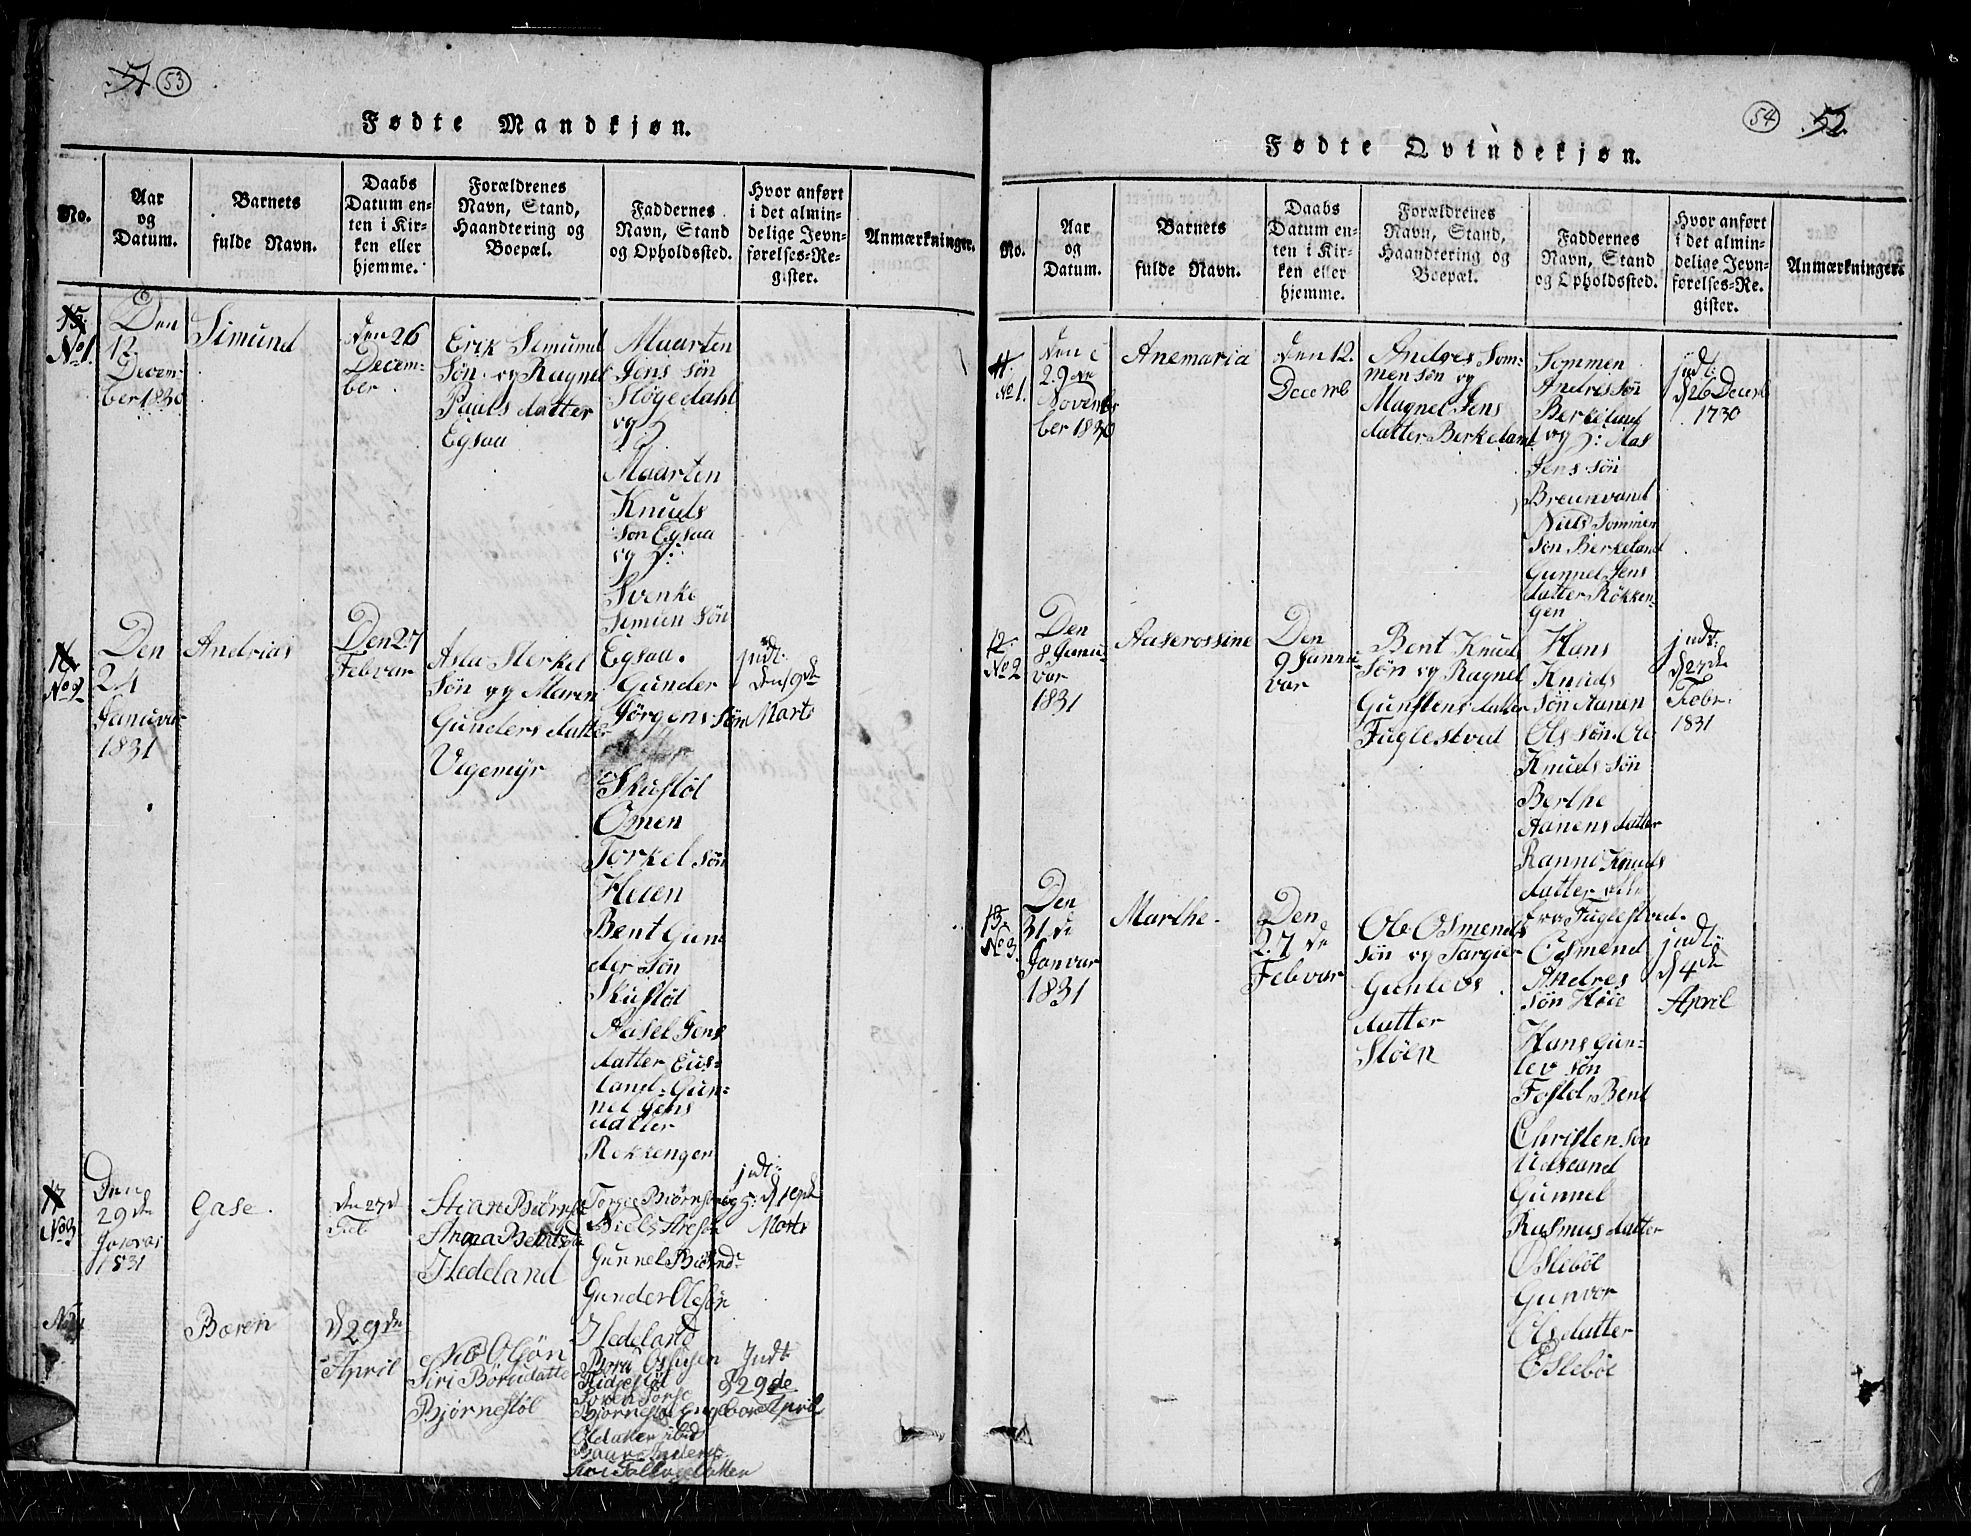 51 53
Fødte Mandkjøn.
No.
Aar
og
Datum.
Barnets
fulde Navn.
Daabs
Datum en-
ten i Kir-
ken eller
hjemme.
Forældrenes
Navn, Stand,
Haandtering og
Boepæl.
Faddernes
Navn, Stand
og Opholdssted.
Hvor anført
i det almin-
delige Jevn-
førelses-Re-
gister.
Anmærkninger.
15.
No 1.
Den
12
Decem-
ber 1830
Simund
den 26
Decem-
ber
Erik Simund
Søn og Ragnel
Pauls datter
Egsaa
Maarten
Jens søn
Støgedahl
og
Maarten
Knuds
søn Egsaa
og
Svenke
Simun Søn
Egsaa.
16
No 2
Den
24
Januvar
1831
Andrias
Den 27
Febvar
Asla Sterkel
Søn og Maren
Gunders datter
Vigemyr
Gunder
Jørgens søn
Skustøl
Omen
Torkel søn
Heien
Bent Gun
der søn
Skustøl
Aasel Jens
datter Eus-
land. Gun-
nel Jens
datter
Rokkengen
jndt:
den 9de
Marts
17
No 3
Den
29de
Janvar
1831
Gase.
den 27d
Feb
Stian Biørns
Anna Bentsd
Hedeland
Torges Biørns
Niels Aresø
Gunnel Biørnd:
Gunder Olesøn
Hedeland
jndt:
d 19de
Marts
No 4
Baren
d 29de
April
Nils Olsøn
Siri Børudatter
Bjørnestøl
Bjørnestøl
Oldatter ibid
Jndt
d 29de
April
54 52
Fødte Qvindekjøn.
No.
Aar
og
Datum.
Barnets
fulde Navn.
Daabs
Datum en-
ten i Kir-
ken eller
hjemme.
Forældrenes
Navn, Stand,
Haandtering og
Boepæl.
Faddernes
Navn, Stand
og Opholdssted.
Hvor anført
i det almin-
delige Jevn-
førelses-Re-
gister.
Anmærkninger.
11.
No 1.
Den
29de
Novem
ber 1830
Anemaria
den 12.
Decemb
Andres Som-
men søn og
Magnel Jens
datter Berkeland
Sommen
Andres søn
Berkeland
og
Jens søn
Breunvand
Niels Sommen
Søn Berkeland
Gunnel Jens
datter Røkken-
gen
jndt:
d 26 Decemb
1730
12.
No 2
Den
8 Janu-
var
1831
Aaserossine
Den
9 Janu
var
Bent Knud
Søn og Ragnel
Gunstens datter
Fuglestved
Hans
Knuds
søn Aanen
Ols søn. Ole
Knuds søn
Berthe
Aanens datter
Ranni Knuds
datter alle
fra Fuglestved.
jndt:
d 27de
Febr.
1831
13.
No 3.
Den
31 de
Janvar
1831
Marthe.
Den
27 de
Febvar
Ole Osmends
søn og Targier
Gunlevs
datter
Støen
Osmend
Andres
søn Høie
Hans Gun-
lev søn
Fostøl, Bent
Christen søn
Udland
Gunnel
Rasmus datter
Oslebøe
Gunvor
Ols datter
Eslebøe
jndt:
d 4de
April